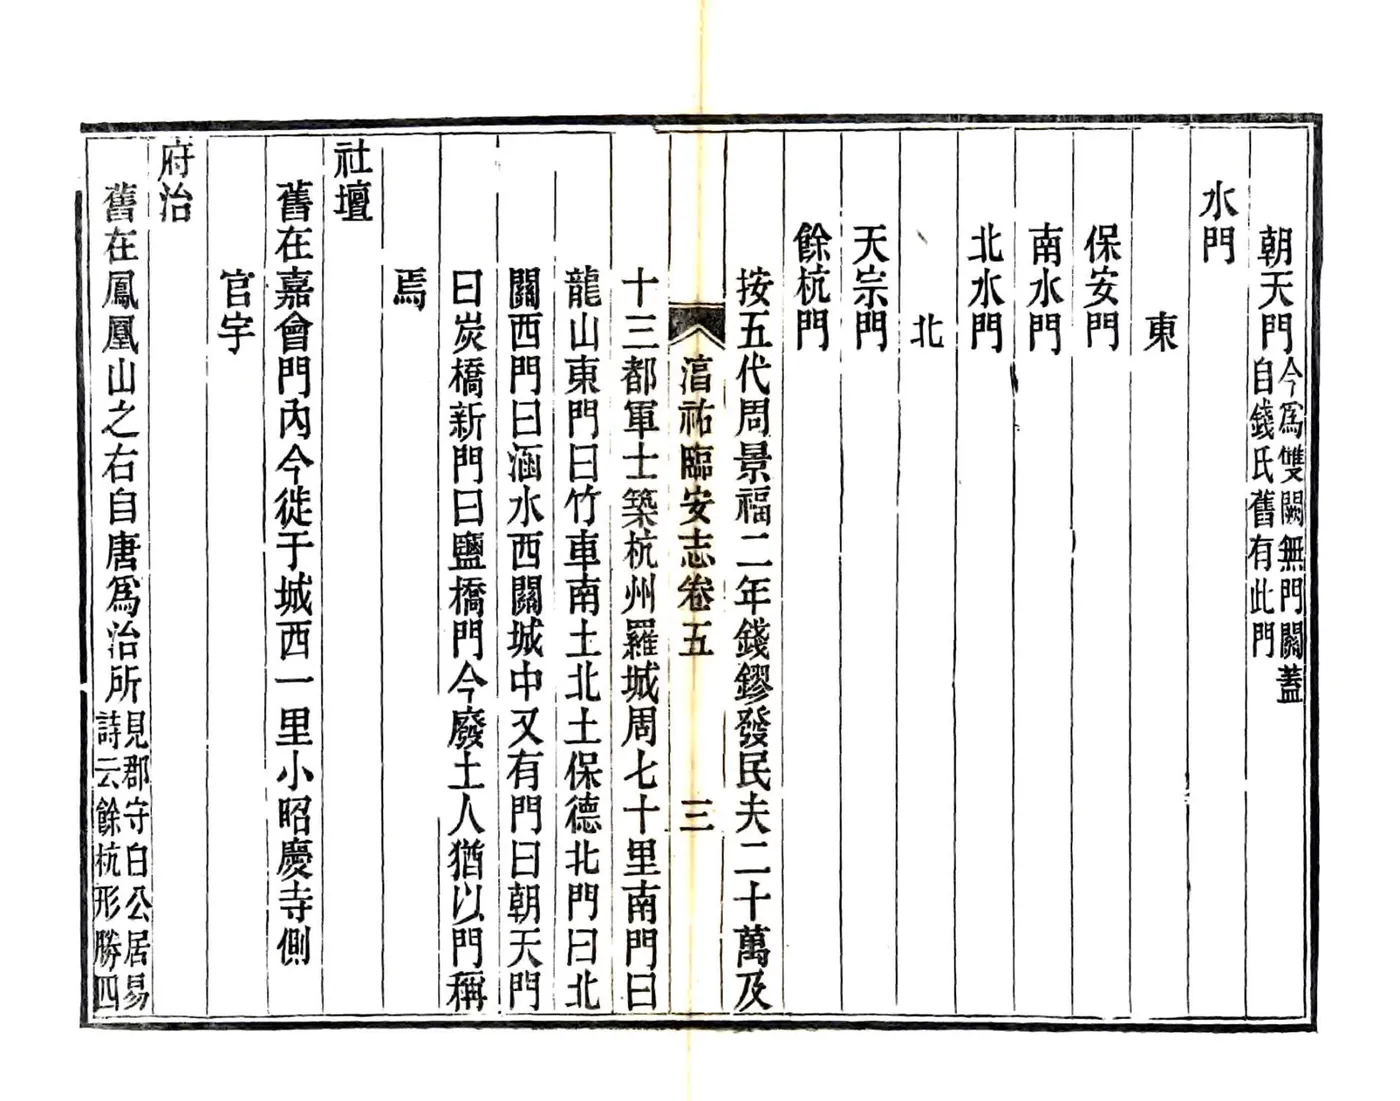 朝天門今爲雙闕無門關蓋
自錢氏舊有此門
水門
東
保安門
南水門
北水門
北
天宗門
餘杭門
按五代周景福二年錢鏐發民夫二十萬及
淳祐臨安志卷五 三
十三都軍士築杭州羅城周七十里南門曰
龍山東門曰竹車南土北土保德北門曰北
關西門曰涵水西關城中又有門曰朝天門
曰炭橋新門曰鹽橋門今廢土人猶以門稱
焉
社壇
舊在嘉會門內今徙于城西一里小昭慶寺側
官宇
府治
舊在鳳凰山之右自唐爲治所見郡守白公居易
詩云餘杭形勝四